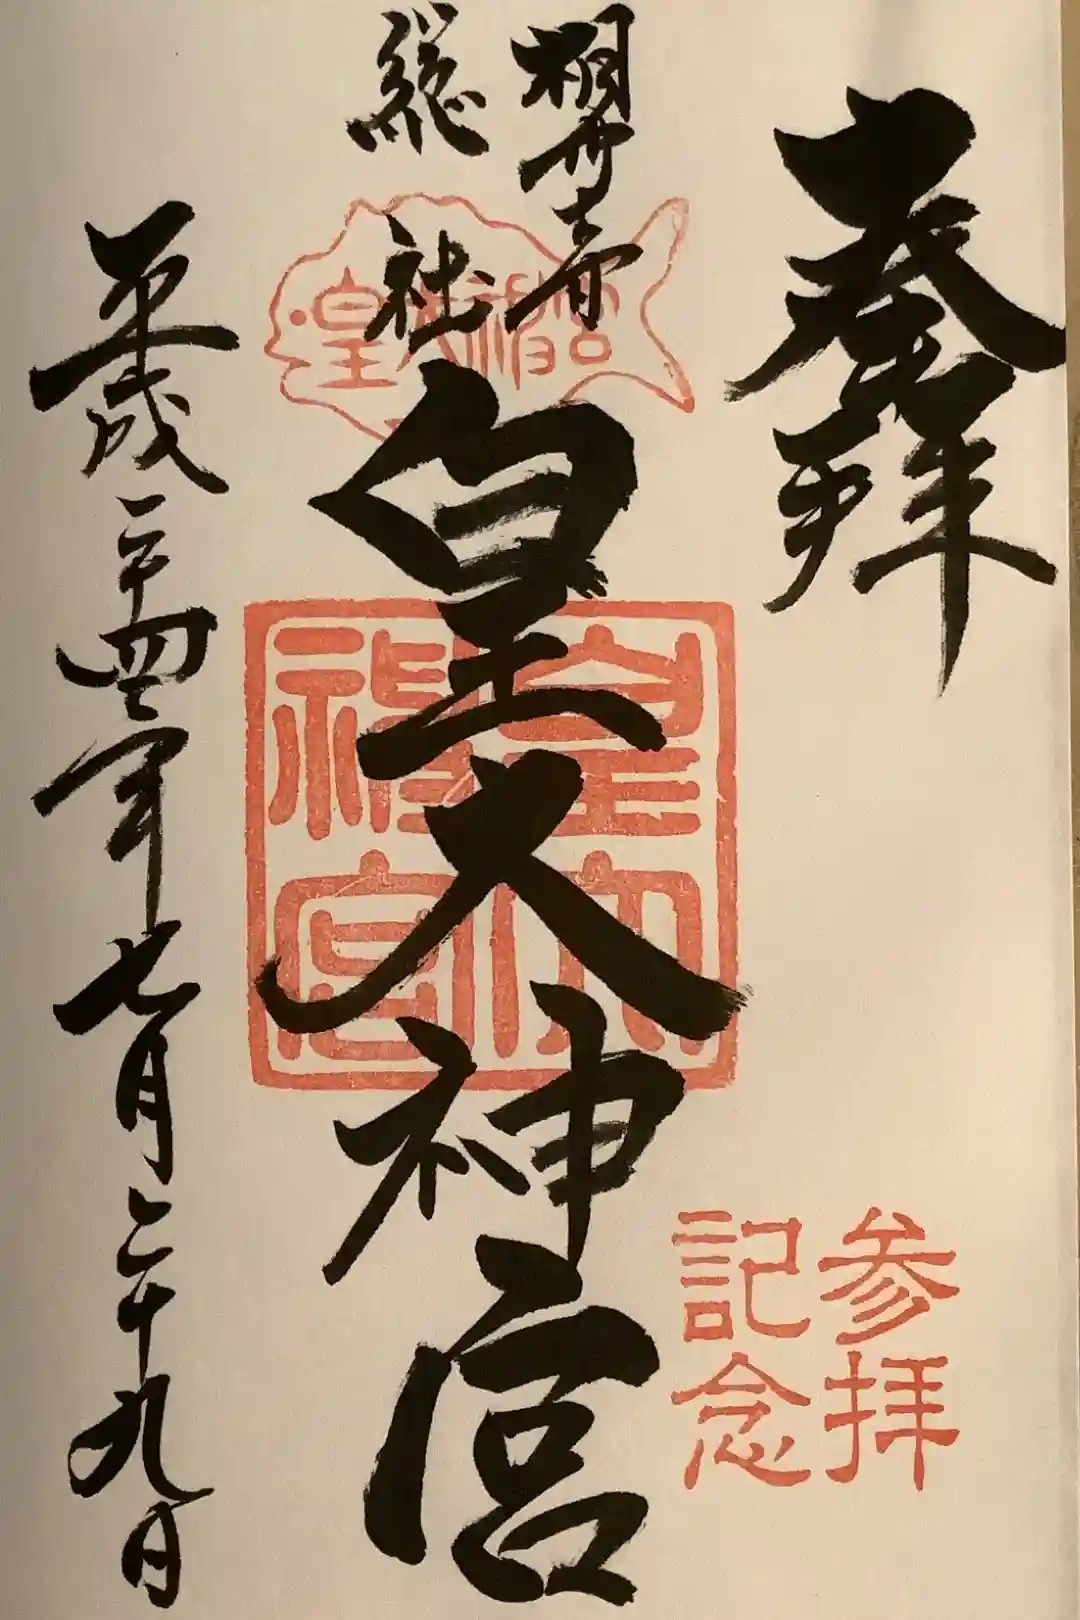 奉拝
相州
総社
皇大神宮
平成二十四年七月二十九日
皇大神宮
皇大神宮
参拝
記念